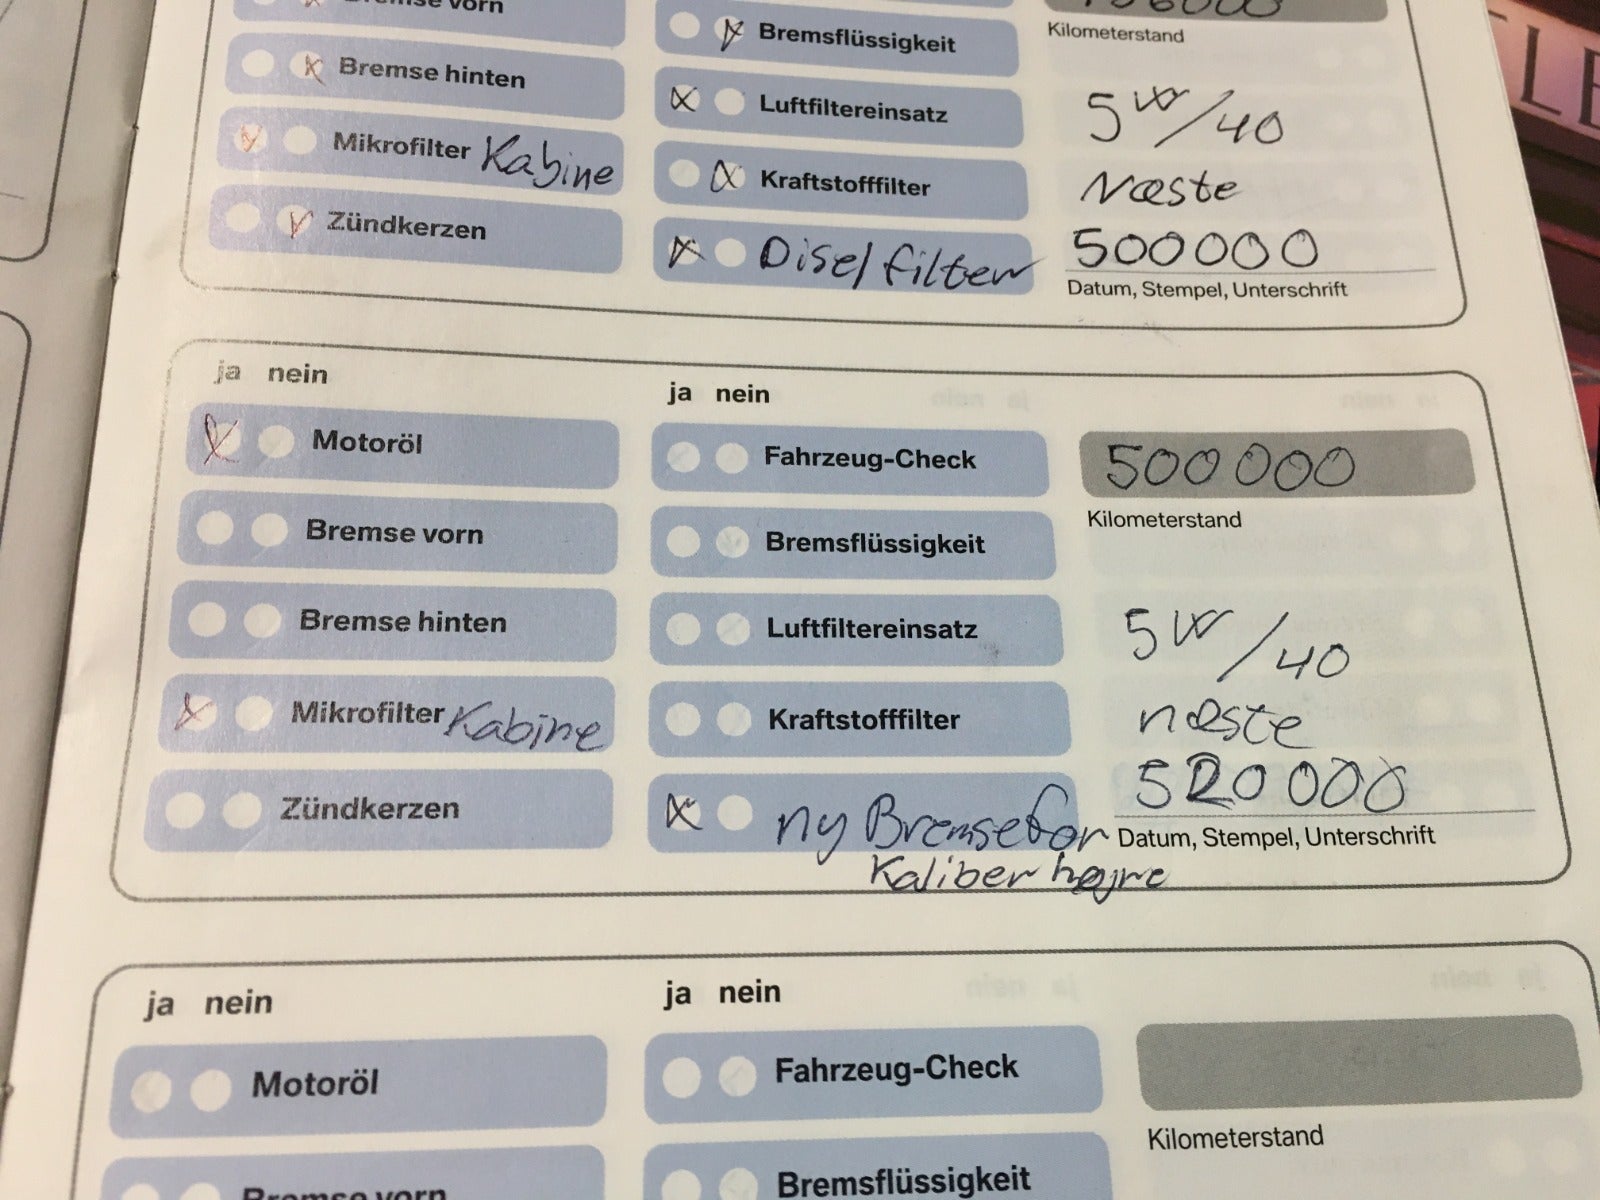 Bremse vorn
Bremse hinten
Mikrofilter Kabine
Zündkerzen
Bremsflüssigkeit
Luftfiltereinsatz
Kraftstofffilter
Disel filter
Kilometerstand
5W/40
Næste
500000
Datum, Stempel, Unterschrift
ja nein
Motoröl
Bremse vorn
Bremse hinten
Mikrofilter Kabine
Zündkerzen
ja nein
Fahrzeug-Check
Bremsflüssigkeit
Luftfiltereinsatz
Kraftstofffilter
ny Bremse for
Kaliber højre
500 000
Kilometerstand
5W/40
næste
520 000
Datum, Stempel, Unterschrift
ja nein
Motoröl
Bremse vorn
ja nein
Fahrzeug-Check
Bremsflüssigkeit
Kilometerstand